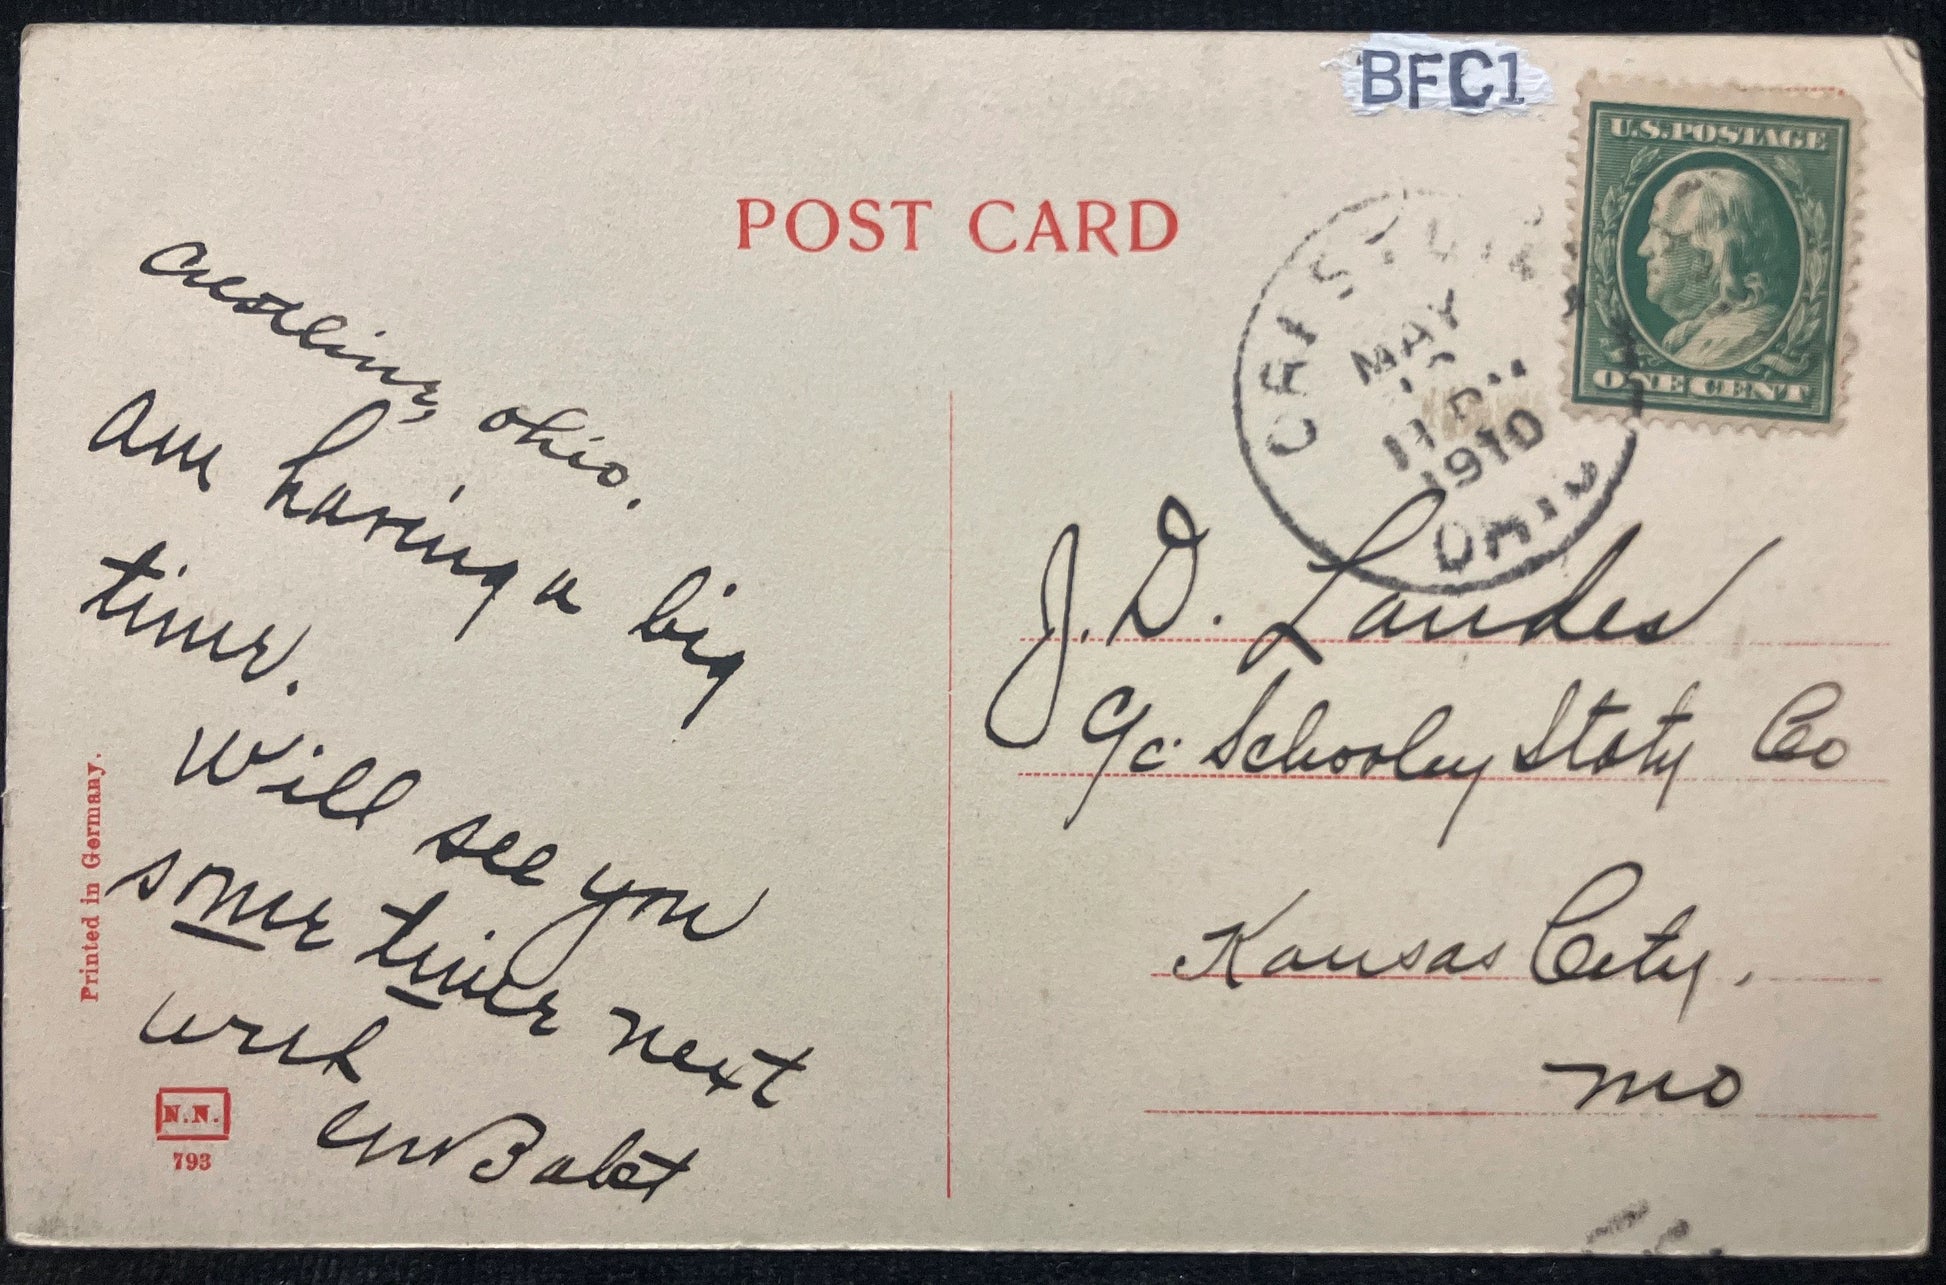 BFC1
U.S.POSTAGE
ONE CENT
POST CARD
MAY
11
1910
OHIO
Crestline, Ohio.
Am having a big
time.
Will see you
some time next
week
J. D. Landes
℅ Schooley Staty Co
Kansas City,
Mo
Printed in Germany.
N.N.
793